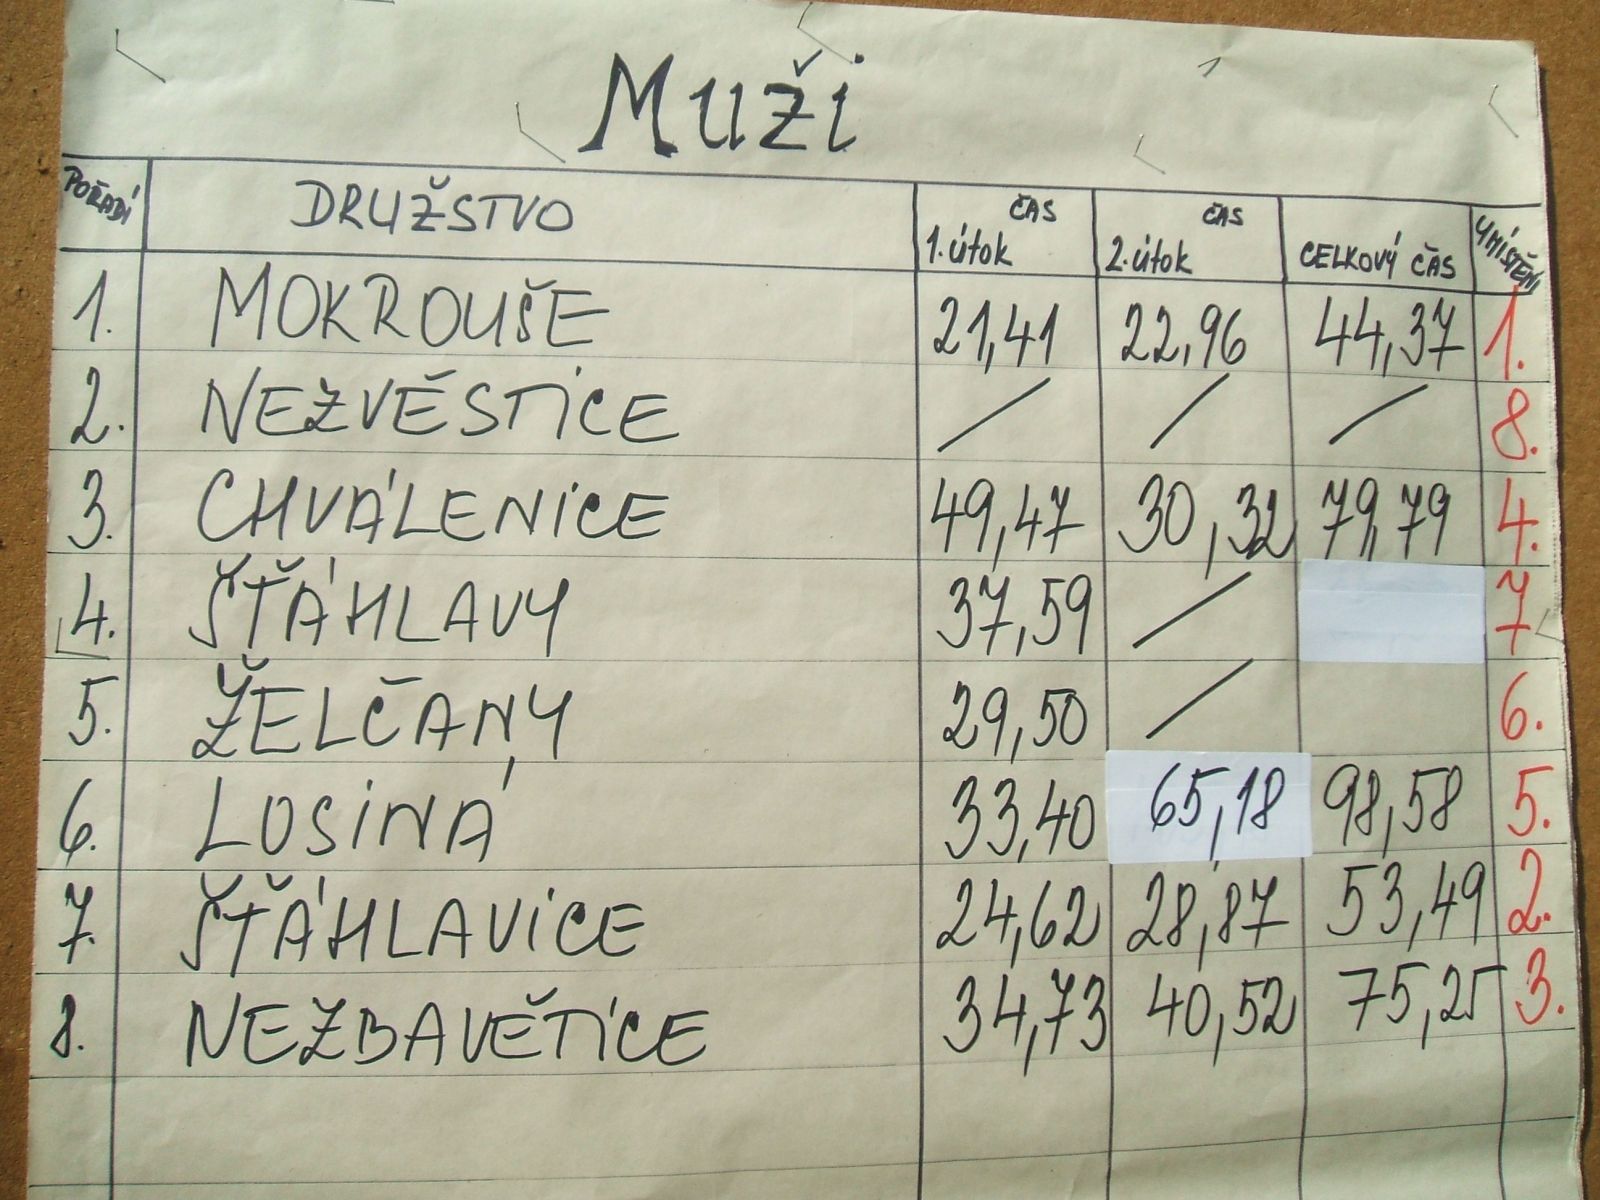 Muži
POŘADÍ DRUŽSTVO ČAS 1. útok ČAS 2. útok CELKOVÝ ČAS UMÍSTĚNÍ
1. MOKROUŠE 21,41 22,96 44,37 1.
2. NEZVĚSTICE / / / 8.
3. CHVÁLENICE 49,47 30,32 79,79 4.
4. ŠŤÁHLAVY 37,59 / 7
5. ŽELČANY 29,50 / 6.
6. LOSINÁ 33,40 65,18 98,58 5.
7. ŠŤÁHLAVICE 24,62 28,87 53,49 2.
8. NEZBAVĚTICE 34,73 40,52 75,25 3.